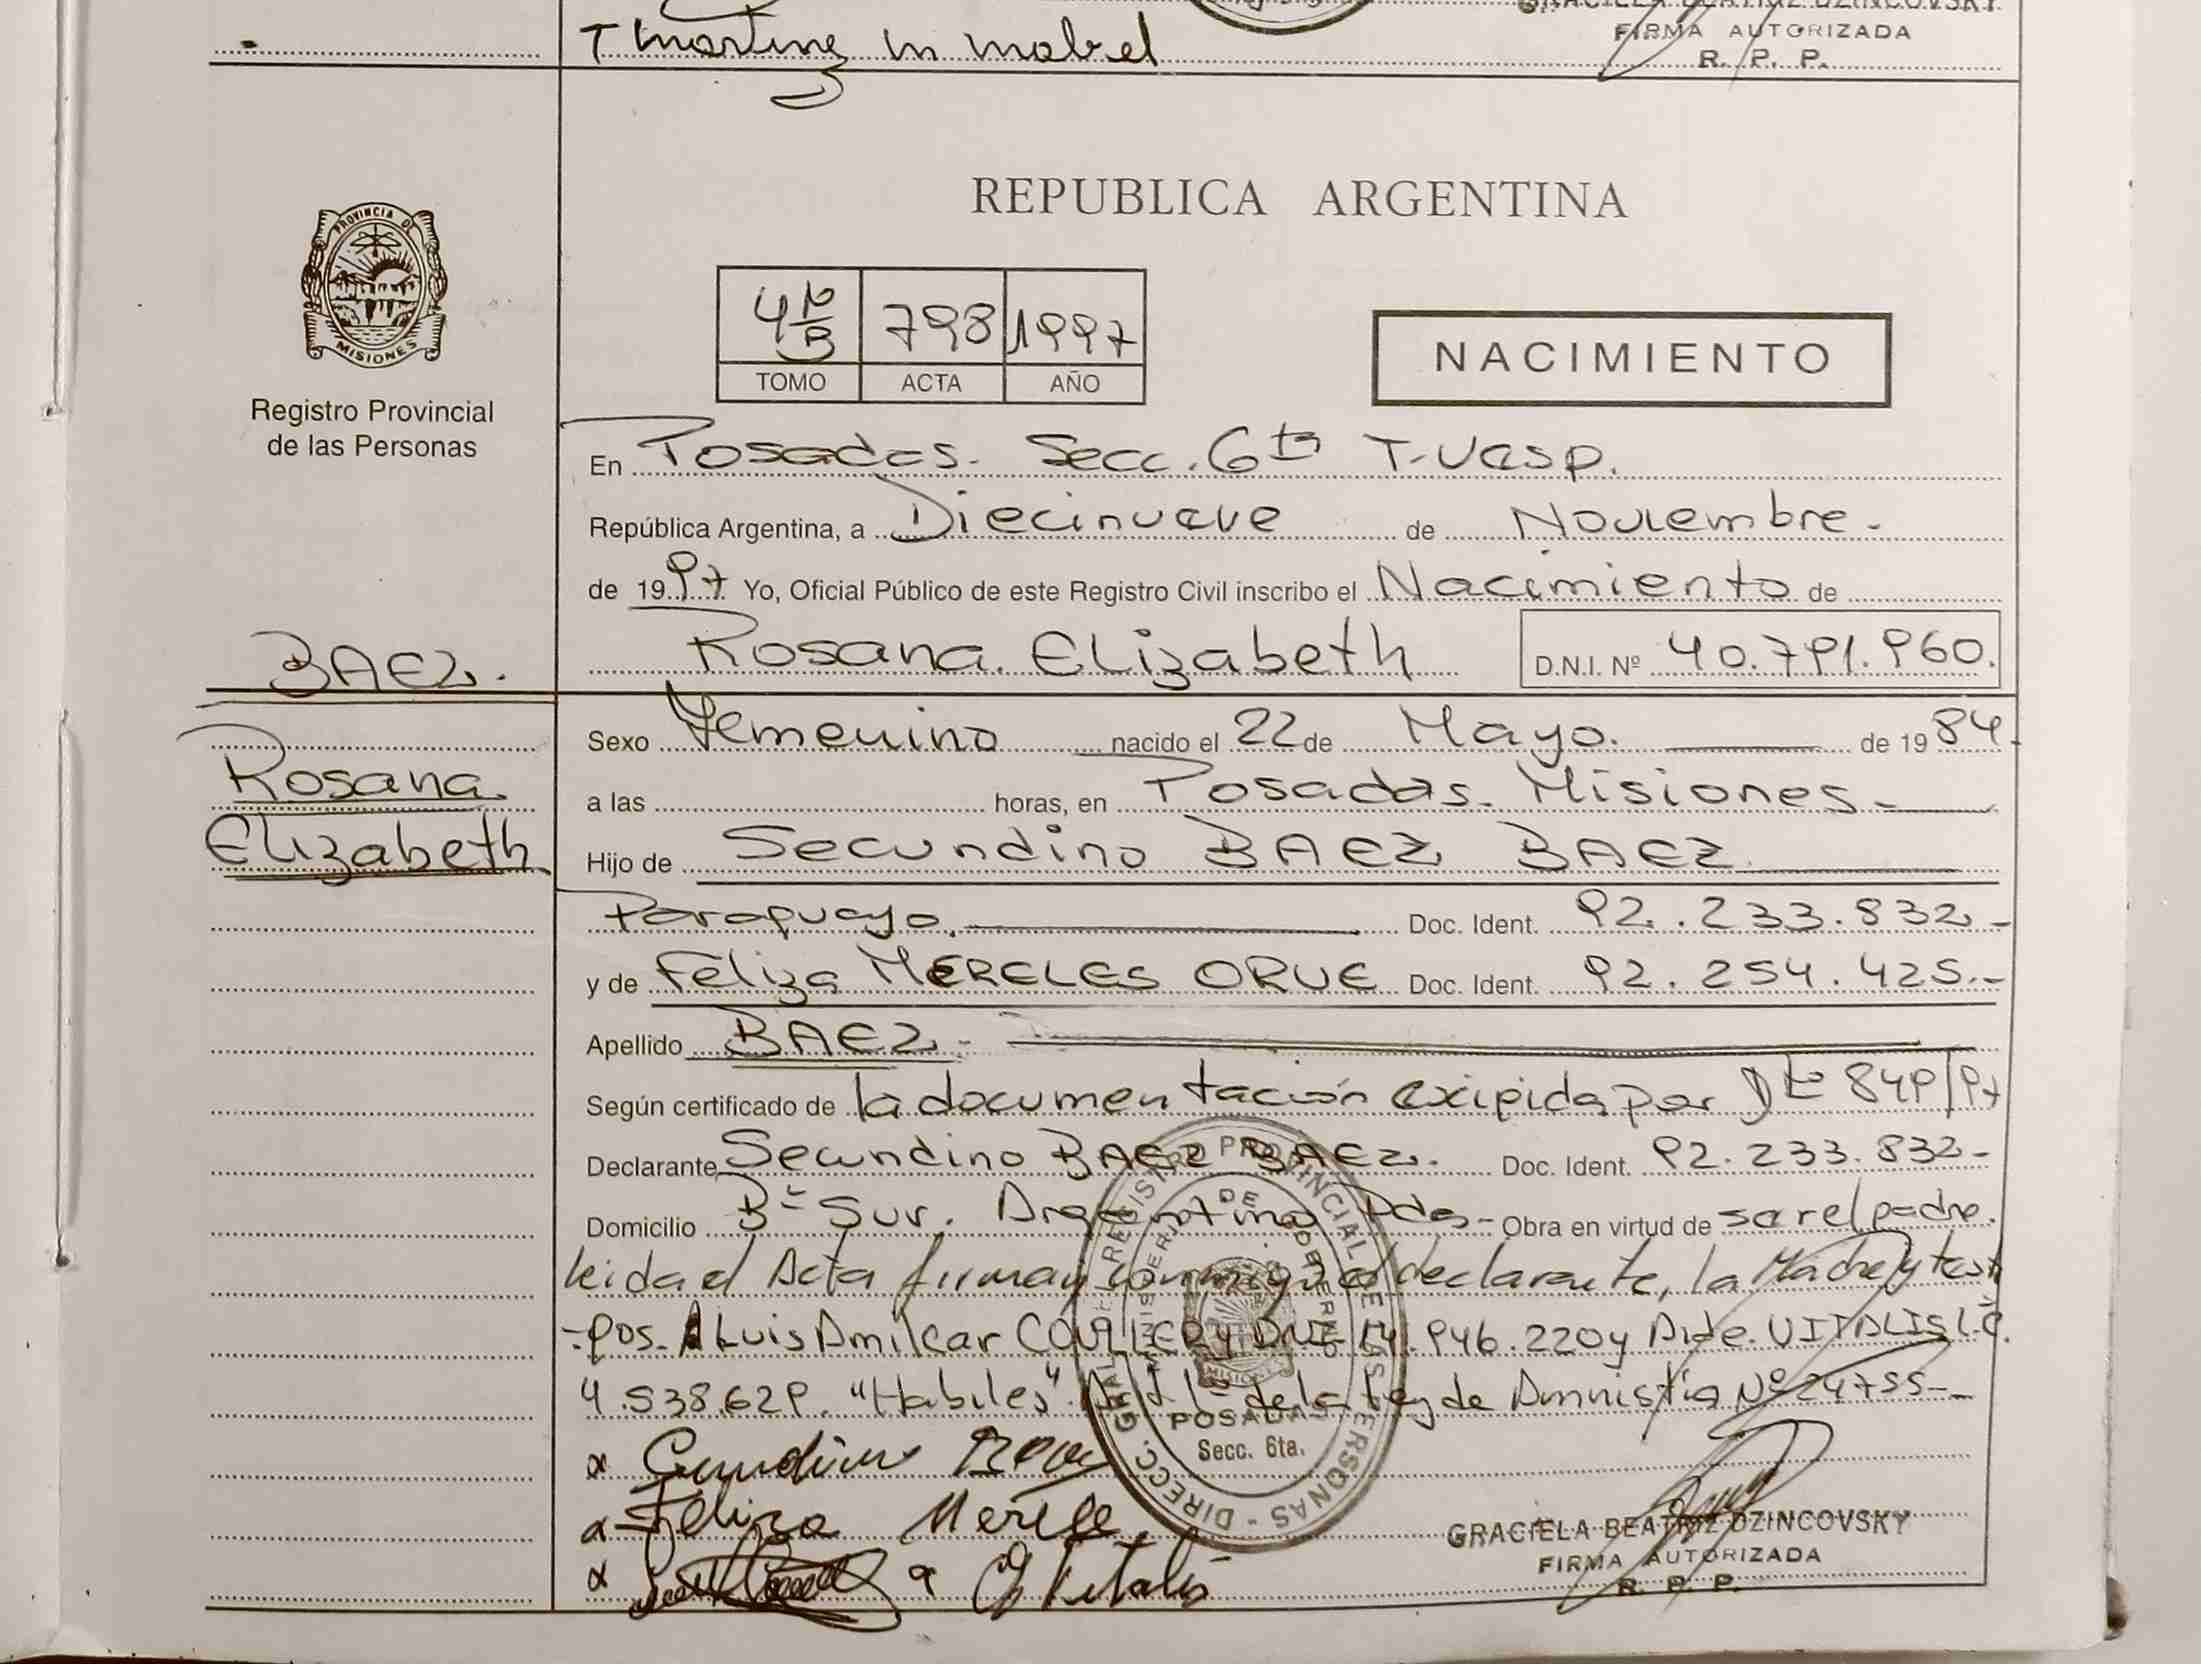 GRACIELA BEATRIZ DZINCOVSKY
FIRMA AUTORIZADA
R. P. P.
T Martinez m mabel
PROVINCIA DE
MISIONES
Registro Provincial
de las Personas
REPUBLICA ARGENTINA
4 N/B 798 1997
TOMO ACTA AÑO
NACIMIENTO
En Posadas. Secc. 6ta T. Vesp.
República Argentina, a Diecinueve de Noviembre.
de 1997 Yo, Oficial Público de este Registro Civil inscribo el Nacimiento de
BAEZ. Rosana. Elizabeth D.N.I. Nº 40.791.960.
Sexo Femenino nacido el 22 de Mayo. de 1984.
Rosana
a las horas, en Posadas. Misiones.
Elizabeth
Hijo de Secundino BAEZ BAEZ
Paraguayo. Doc. Ident. 92.233.832.-
y de Feliza MERELES ORUE Doc. Ident. 92.254.425.-
Apellido BAEZ.-
Según certificado de la documentación exigida por Dto 849/97
Declarante Secundino BAEZ BAEZ. Doc. Ident. 92.233.832-
Domicilio Bº Sur. Argentino Pdas- Obra en virtud de ser el padre.
leida el Acta firman conmigo el declarante, la Madre y testi
-gos. Luis Amilcar COULLERY DNI 14.946.220 y Aide. VITALIS L.C.
4.538.629. "Habiles" Art 1º de la Ley de Amnistia Nº 24755-
REGISTRO PROVINCIAL DE LAS PERSONAS - DIRECC. GRAL.
MINISTERIO DE GOBIERNO
MISIONES
POSADAS
Secc. 6ta.
x Feliza Merele
x x Vitalis
GRACIELA BEATRIZ DZINCOVSKY
FIRMA AUTORIZADA
R. P. P.